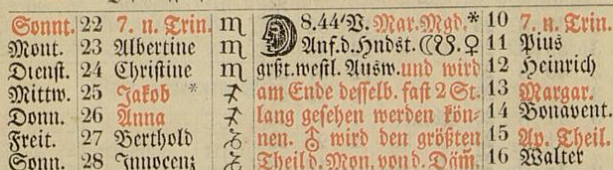 Sonnt. 22 7. n. Trin. ♏ 8.44'V. Mar. Mgd.* 10 7. n. Trin.
Mont. 23 Albertine ♏ Anf. d. Hndst. ☾☋. ♀ 11 Pius
Dienst. 24 Christine ♏ grßt. westl. Ausw. und wird 12 Heinrich
Mittw. 25 Jakob * ♐ am Ende desselb. fast 2 St. 13 Margar.
Donn. 26 Anna ♐ lang gesehen werden kön- 14 Bonavent.
Freit. 27 Berthold ♑ nen. ♁ wird den größten 15 Ap. Theil.
Sonn. 28 Innocenz ♑ Theil d. Mon. von d. Däm. 16 Walter